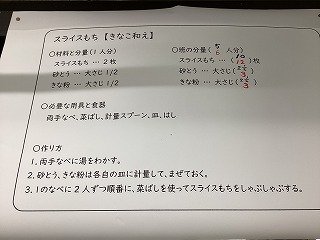 スライスもち【きなこ和え】
○材料と分量(1人分)
スライスもち … 2枚
砂とう … 大さじ 1/2
きな粉 … 大さじ 1/2
○班の分量( 5 6 人分)
スライスもち … ( 10 12 )枚
砂とう … 大さじ( 3 )
きな粉 … 大さじ( 3 )
○必要な用具と食器
両手なべ、菜ばし、計量スプーン、皿、はし
○作り方
1.両手なべに湯をわかす。
2.砂とう、きな粉は各自の皿に計量して、まぜておく。
3.1のなべに2人ずつ順番に、菜ばしを使ってスライスもちをしゃぶしゃぶする。